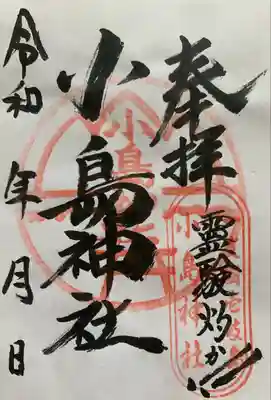 奉拝
霊験灼か
小島神社
令和 年 月 日
小島神社